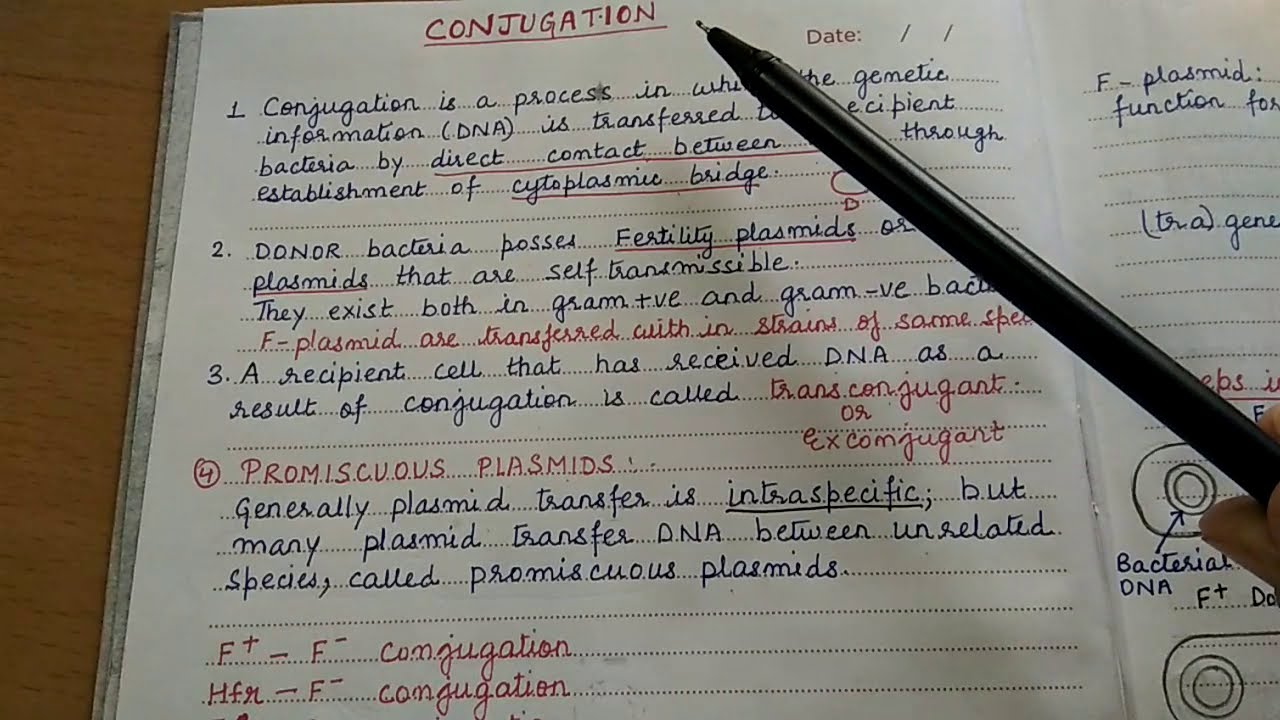 CONJUGATION
Date: / /
1 Conjugation is a process in the genetic
information (DNA) is transferred
bacteria by direct contact between through
establishment of cytoplasmic bridge.
D
2. DONOR bacteria posses Fertility plasmids or
plasmids that are self transmissible.
They exist both in gram +ve and gram -ve
F-plasmid are transferred with in strains of same
3. A recipient cell that has received DNA as a
result of conjugation is called transconjugant.
or
Exconjugant
④ PROMISCUOUS PLASMIDS:-
Generally plasmid transfer is intraspecific; but
many plasmid transfer DNA between unrelated
species, called promiscuous plasmids.
F+ - F- conjugation
Hfr - F- conjugation
F-plasmid:
function for
(tra) gene
Bacterial
DNA
F+